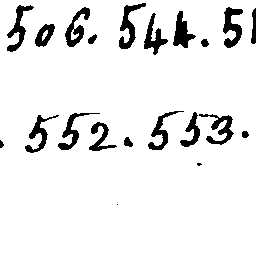 506. 544. 51
. 552. 553.